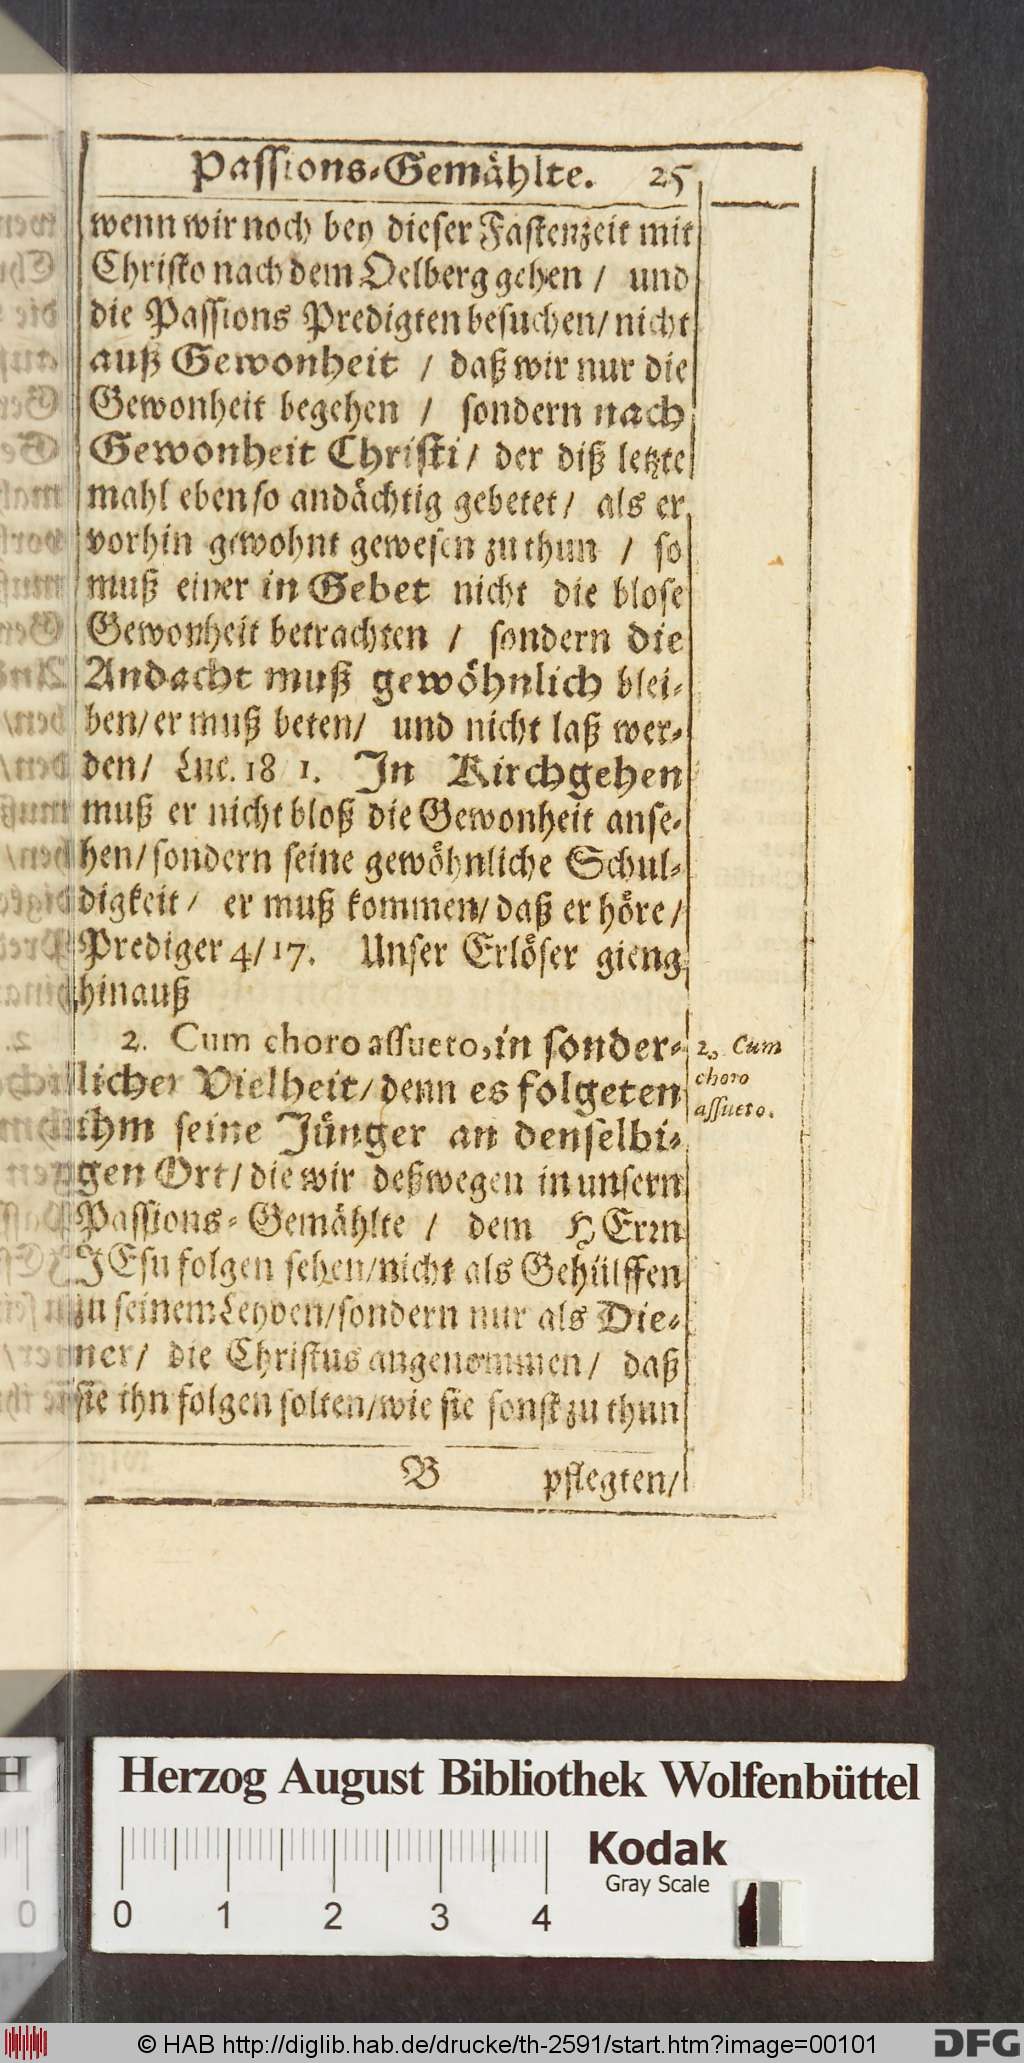 Passions-Gemählte. 25
wenn wir noch bey dieser Fastenzeit mit
Christo nach dem Oelberg gehen / und
die Passions Predigten besuchen / nicht
auß Gewonheit / daß wir nur die
Gewonheit begehen / sondern nach
Gewonheit Christi / der diß letzte
mahl eben so andächtig gebetet / als er
vorhin gewohnt gewesen zu thun / so
muß einer in Gebet nicht die blose
Gewonheit betrachten / sondern die
Andacht muß gewöhnlich blei-
ben / er muß beten / und nicht laß wer-
den / Luc. 18 1. In Kirchgehen
muß er nicht bloß die Gewonheit anse-
hen / sondern seine gewöhnliche Schul-
digkeit / er muß kommen / daß er höre /
Prediger 4 / 17. Unser Erlöser gieng
hinauß
2. Cum choro assueto, in sonder-
licher Vielheit / denn es folgeten
ihm seine Jünger an denselbi-
gen Ort / die wir deßwegen in unsern
Passions-Gemählte / dem HErrn
JEsu folgen sehen / nicht als Gehülffen
zu seinem Leyden / sondern nur als Die-
ner / die Christus angenommen / daß
sie ihn folgen solten / wie sie sonst zu thun
B pflegten /
2. Cum
choro
assueto.
Herzog August Bibliothek Wolfenbüttel
Kodak
Gray Scale
0 1 2 3 4
© HAB http://diglib.hab.de/drucke/th-2591/start.htm?image=00101
DFG